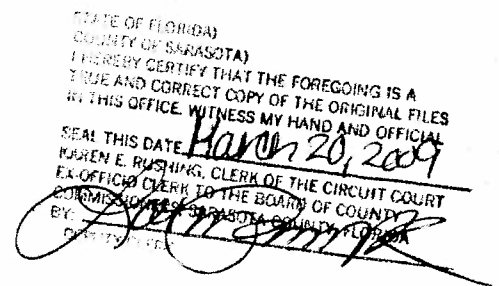 STATE OF FLORIDA)
COUNTY OF SARASOTA)
I HEREBY CERTIFY THAT THE FOREGOING IS A
TRUE AND CORRECT COPY OF THE ORIGINAL FILES
IN THIS OFFICE. WITNESS MY HAND AND OFFICIAL
SEAL THIS DATE March 20, 2009
KAREN E. RUSHING, CLERK OF THE CIRCUIT COURT
EX-OFFICIO CLERK TO THE BOARD OF COUNTY
COMMISSIONERS SARASOTA COUNTY, FLORIDA
BY:
DEPUTY CLERK